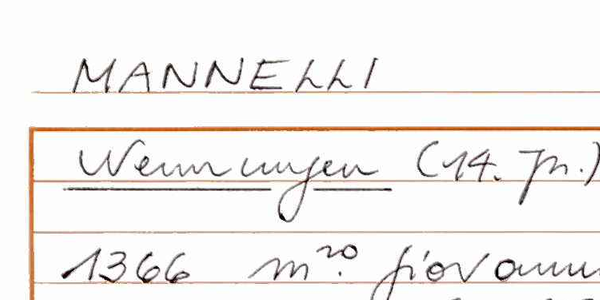 MANNELLI
Nennungen (14. Jh.)
1366 m.ro Giovanni